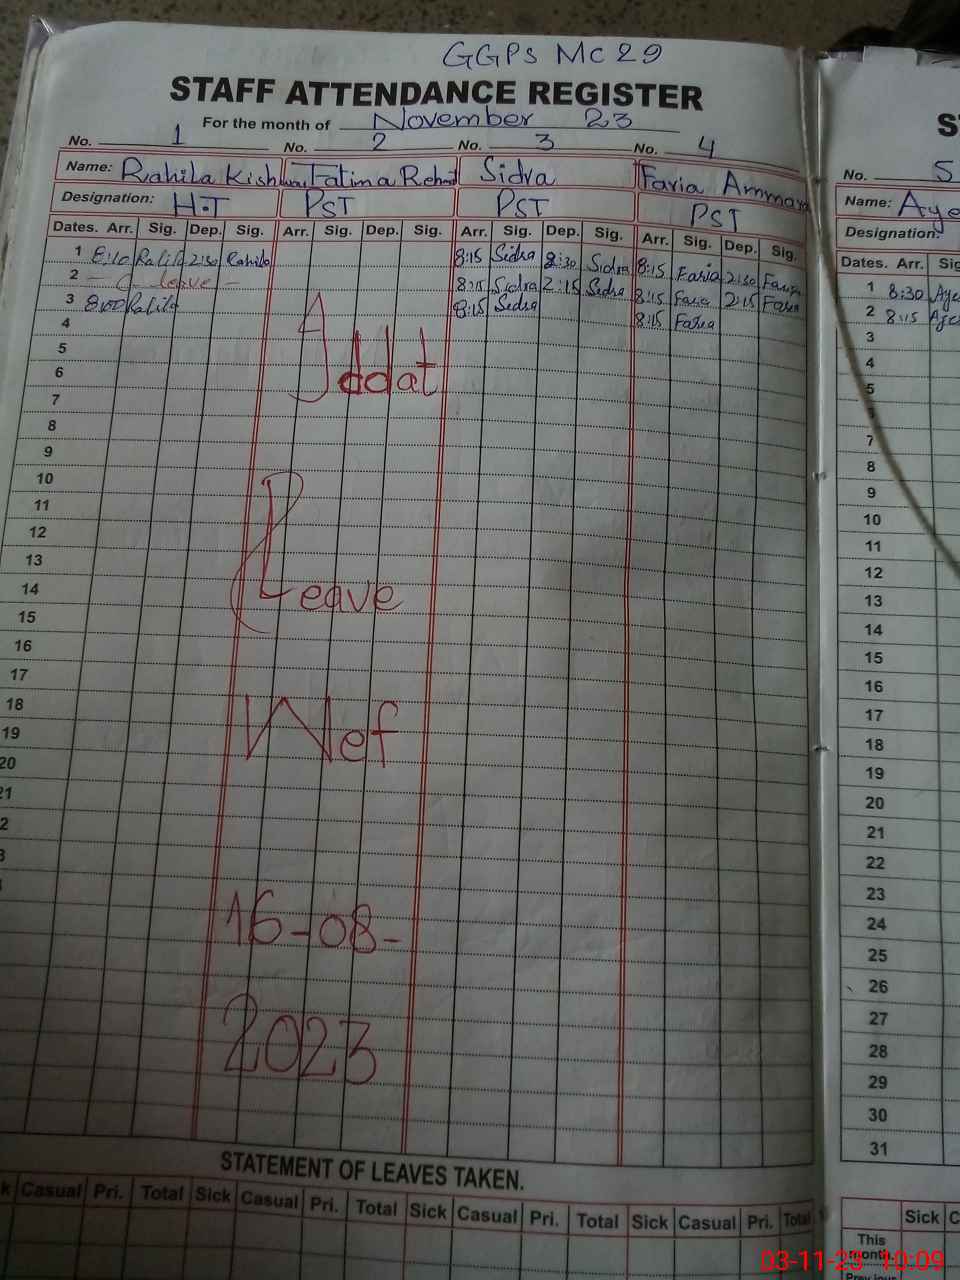 GGPS MC 29
STAFF ATTENDANCE REGISTER
For the month of November 23
No. 1 No. 2 No. 3 No. 4
Name: Rahila Kishwar Fatima Rehmat Sidra Faria Ammara
Designation: H.T PST PST PST
Dates. Arr. Sig. Dep. Sig. Arr. Sig. Dep. Sig. Arr. Sig. Dep. Sig. Arr. Sig. Dep. Sig.
1 8:10 Rahila 2:30 Rahila 8:15 Sidra 2:30 Sidra 8:15 Faria 2:30 Faria
2 leave 8:15 Sidra 2:15 Sidra 8:15 Faria 2:15 Faria
3 8:00 Rahila 8:15 Sidra 8:15 Faria
4
5
6
7
8
9
10
11
12
13
14
15
16
17
18
19
20
21
2
3
Iddat
Leave
Wef
16-08-
2023
STATEMENT OF LEAVES TAKEN.
k Casual Pri. Total Sick Casual Pri. Total Sick Casual Pri. Total Sick Casual Pri. Total
S
No. 5
Name: Aye
Designation:
Dates. Arr. Sig
1 8:30 Aye
2 8:15 Aye
3
4
5
6
7
8
9
10
11
12
13
14
15
16
17
18
19
20
21
22
23
24
25
26
27
28
29
30
31
Sick C
This
month.
03-11-23 10:09